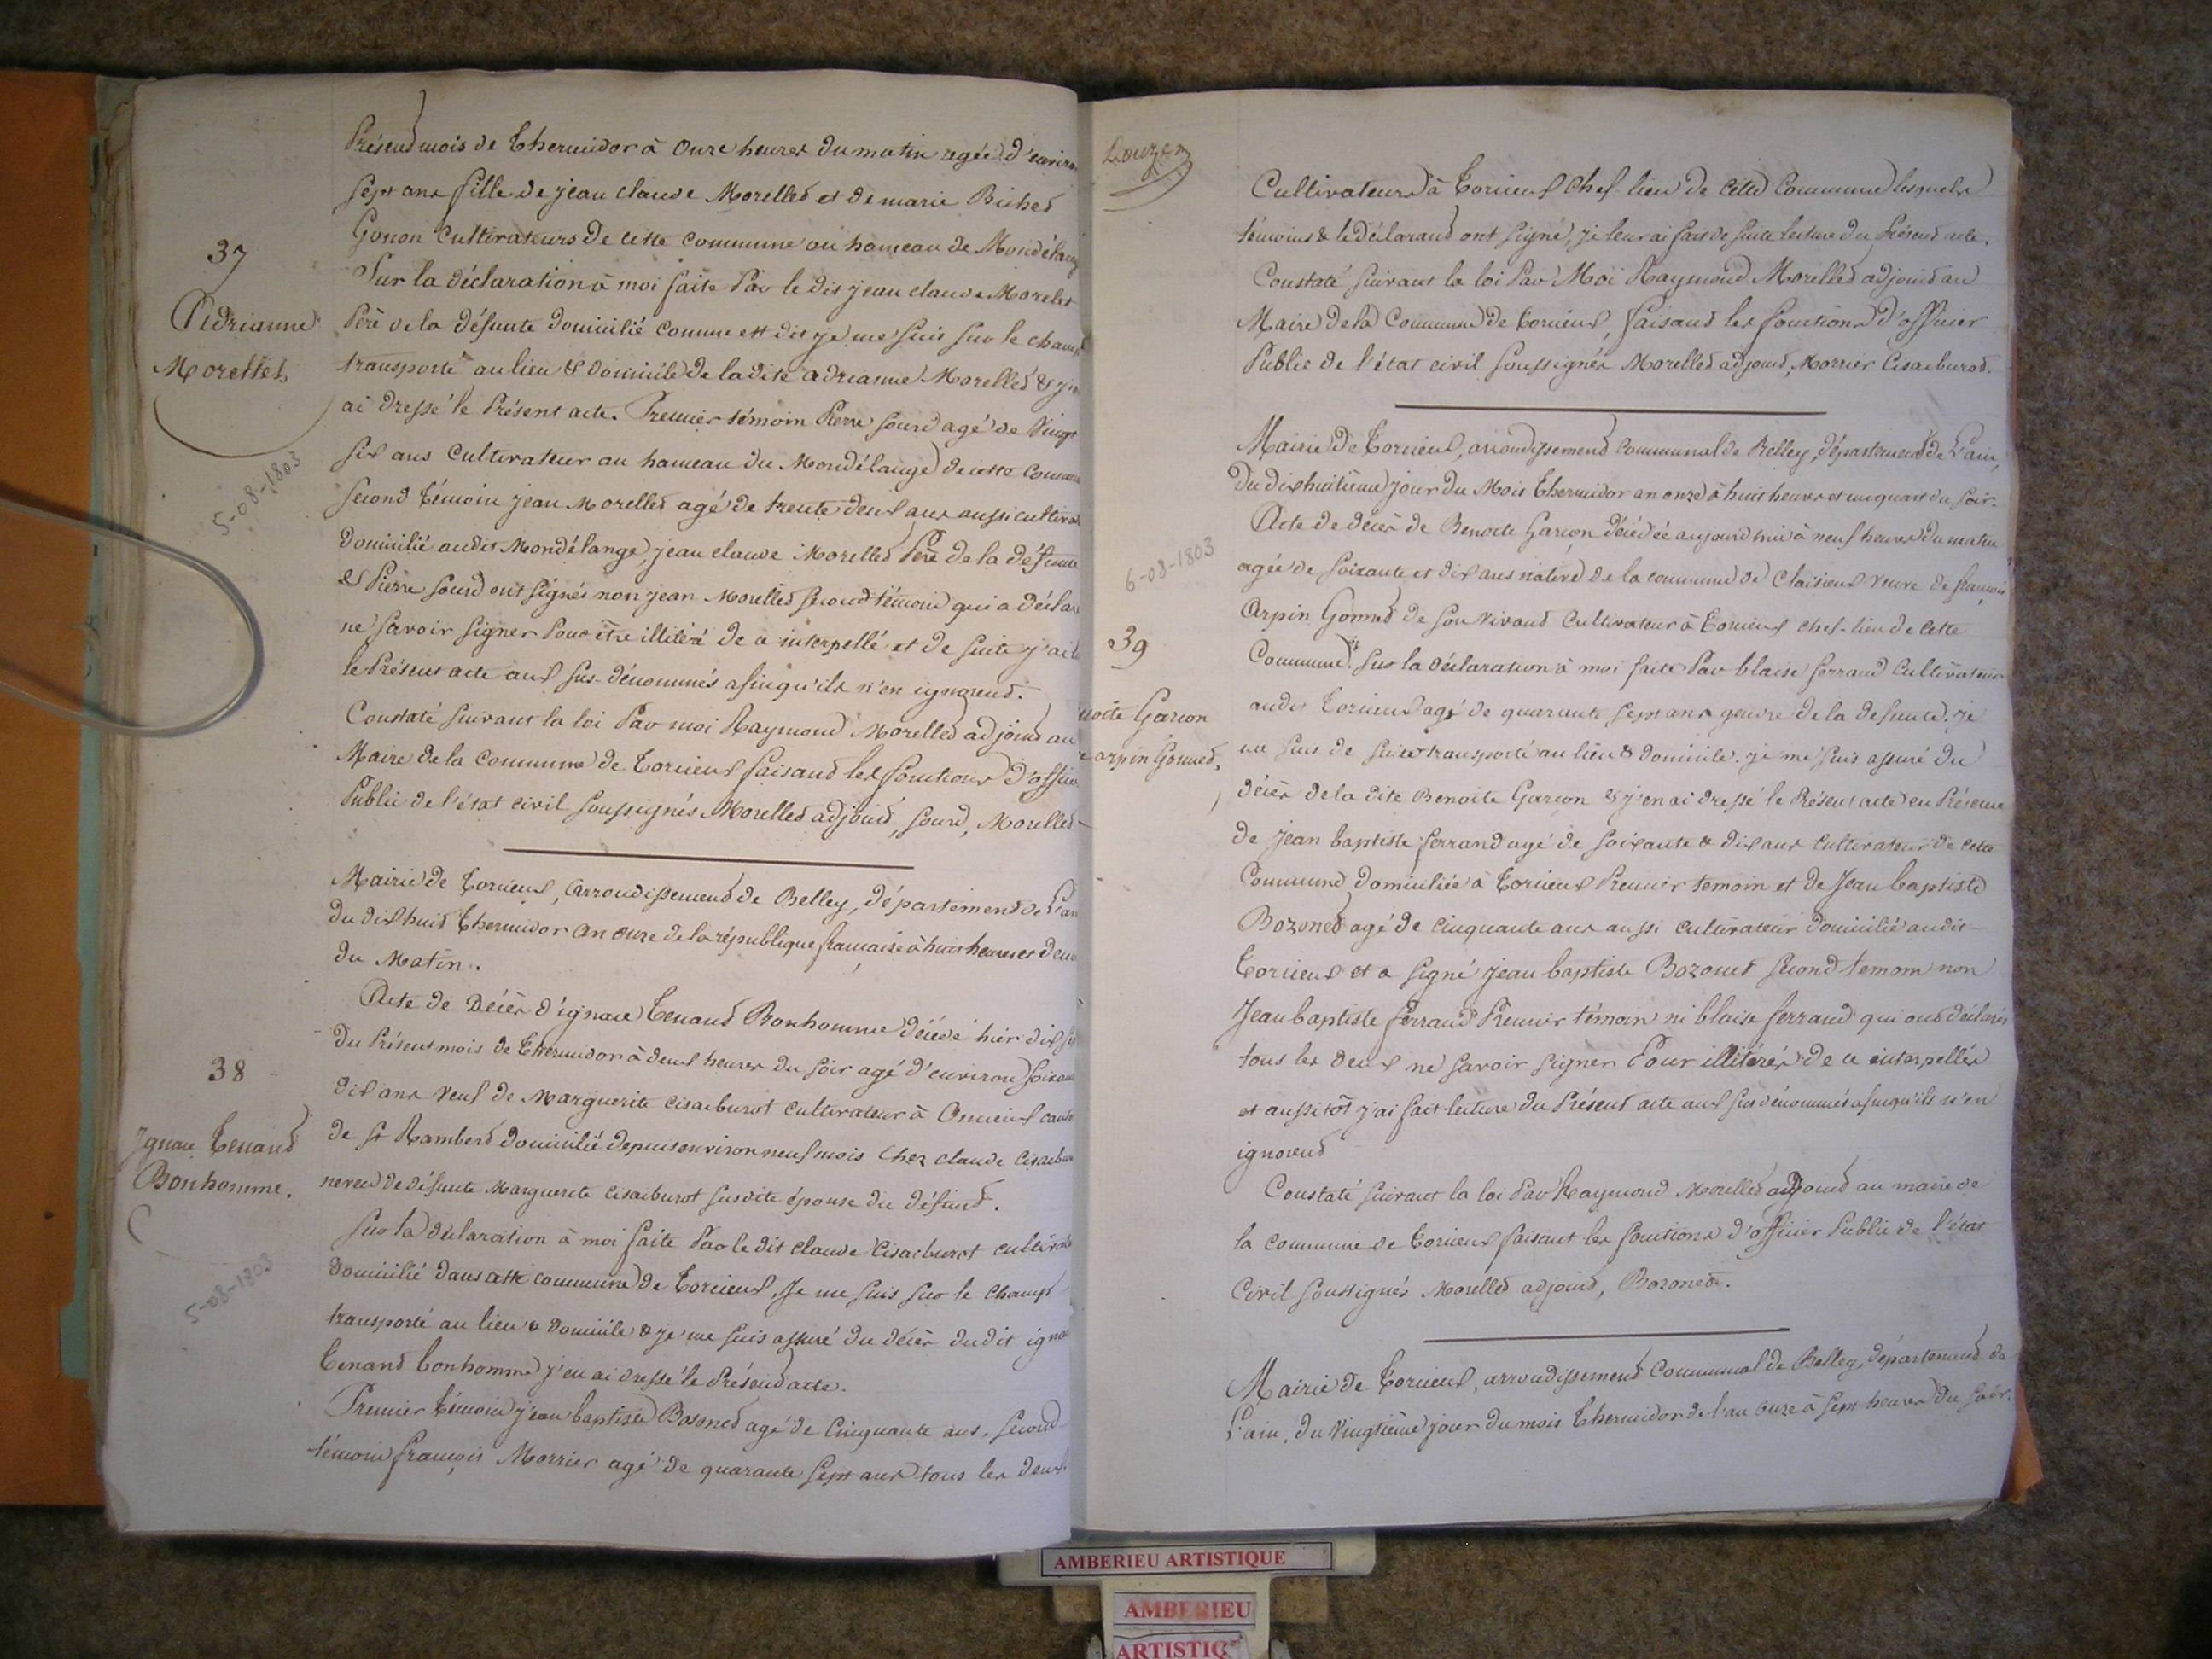 Présend mois de Thermidor à onze heures du matin agée d'environ
sept ans fille de jean claude Morelled et de marie Biched
Gonon Cultivateurs de cette commune au hameau de Mondélange
37
Sur la déclaration à moi faite Par le dit jean claude Morelet
Adrianne
Morettet
Perè de la défunte domicilié comme est dit je me suis sur le champ
transporté au lieu & domicile de la dite adrianne Morelled & j'en
ai dressé le Présent acte. Premier témoin Pierre sourd agé de Vingt
six ans Cultivateur au hameau du Mondélange de cette Commune
5-08-1803
second témoin jean Morelled agé de trente deux ans aussi cultivat
domicilié audit Mondélange, jean claude Morelled Perè de la défunte
& Pierre sourd ont signés non jean Morelled second témoin qui a déclaré
ne savoir signer Pour être illitéré de a interpellé et de suite j'ai lu
le Présent acte aux sus-dénommés afinqu'ils n'en ignorend.
Constaté suivant la loi Par moi Raymond Morelled adjoind au
Maire de la Commune de Torcieux faisand les fonctions d'officier
Public de l'état civil soussignés Morelled adjoind, sourd, Morelled
Mairie de Torcieux, arrondissemend de Belley, départemend de L'ain
du dix huid Thermidor an onze de la république française à huit heures et demi
du Matin.
Acte de Décès d'ignace Tenand Bonhomme décédé hier dix sep
38
du Présent mois de Thermidor à deux heures du soir agé d'environ soixante
dix ans Veuf de Marguerite Cisacburot cultivateur à Oncieux canton
Ignace Tenand
Bonhomme.
de St Ramberd domicilié depuis environ neuf mois Chez claude Cisacburot
neveu de défunte Marguerite Cisacburot susdite épouse du défund.
Sur la déclaration à moi faite Par le dit claude Cisacburot cultivate
5-08-1803
domicilié dans cette commune de Torcieux, Je me suis sur le champ
transporté au lieu & domicile & je me suis assuré du décès dudit ignace
Tenand bonhomme j'en ai dressé le Présend acte.
Premier témoin jean baptiste Bozoned agé de Cinquante ans, second
témoin françois Morrier agé de quarante sept ans tous les deux
Cultivateurs à Torcieux Chef lieu de cette Commune lesquels
témoins & le déclarand ont signé, je leur ai fais de suite lecture du Présend acte.
Constaté suivant la loi Par Moi Raymond Morelled adjoind au
Maire de la Commune de Torcieux, faisand les fonctions d'officier
Public de l'état civil soussignés Morelled adjoind, Morrier Cisacburod.
Mairie de Torcieux, arrondissemend communal de Belley, départemend de L'ain,
du dix huitième jour du Mois Thermidor an onze à huit heures et un quart du soir.
Acte de décès de Benoite Garçon décédée aujourd'hui à neuf heures du matin
6-08-1803
agée de soixante et dix ans native de la commune de Cleisieux veuve de françois
Arpin Gonned de son Vivand Cultivateur à Torcieux chef-lieu de Cette
39
Commune. Sur la déclaration à moi faite Par blaise ferrand Cultivateur
noite Garcon
audit Torcieux agé de quarante sept ans gendre de la defunte. je
arpin Gonned,
me suis de suite transporté au lieu & domicile. je me suis assuré du
décès de la dite Benoite Garcon & j'en ai dressé le Présent acte en Présence
de jean baptiste ferrand agé de soixante & dix ans Cultivateur de cette
Commune domiciliée à Torcieux Premier temoin et de Jean baptiste
Bozoned agé de cinquante ans aussi cultivateur domicilié audit
Torcieux et a signé jean baptiste Bozoned second temoin non
Jean baptiste ferrand Premier témoin ni blaise ferrand qui ont déclarés
tous les deux ne savoir signer Pour illitérés de ce interpellés
et aussitôt j'ai fait lecture du Présend acte aux sus dénommés afinqu'ils n'en
ignorend
Constaté suivant la loi Par Raymond Morelled adjoind au maire de
la commune de Torcieux faisant les fonctions d'officier Public de l'état
Civil soussignés Morelled adjoind, Bozoned.
Mairie de Torcieux, arrondissemend Communal de Belley, départemend de
L'ain, du Vingtième jour du mois Thermidor de l'an onze à sept heures du soir.
AMBERIEU ARTISTIQUE
AMBERIEU
ARTISTIQ